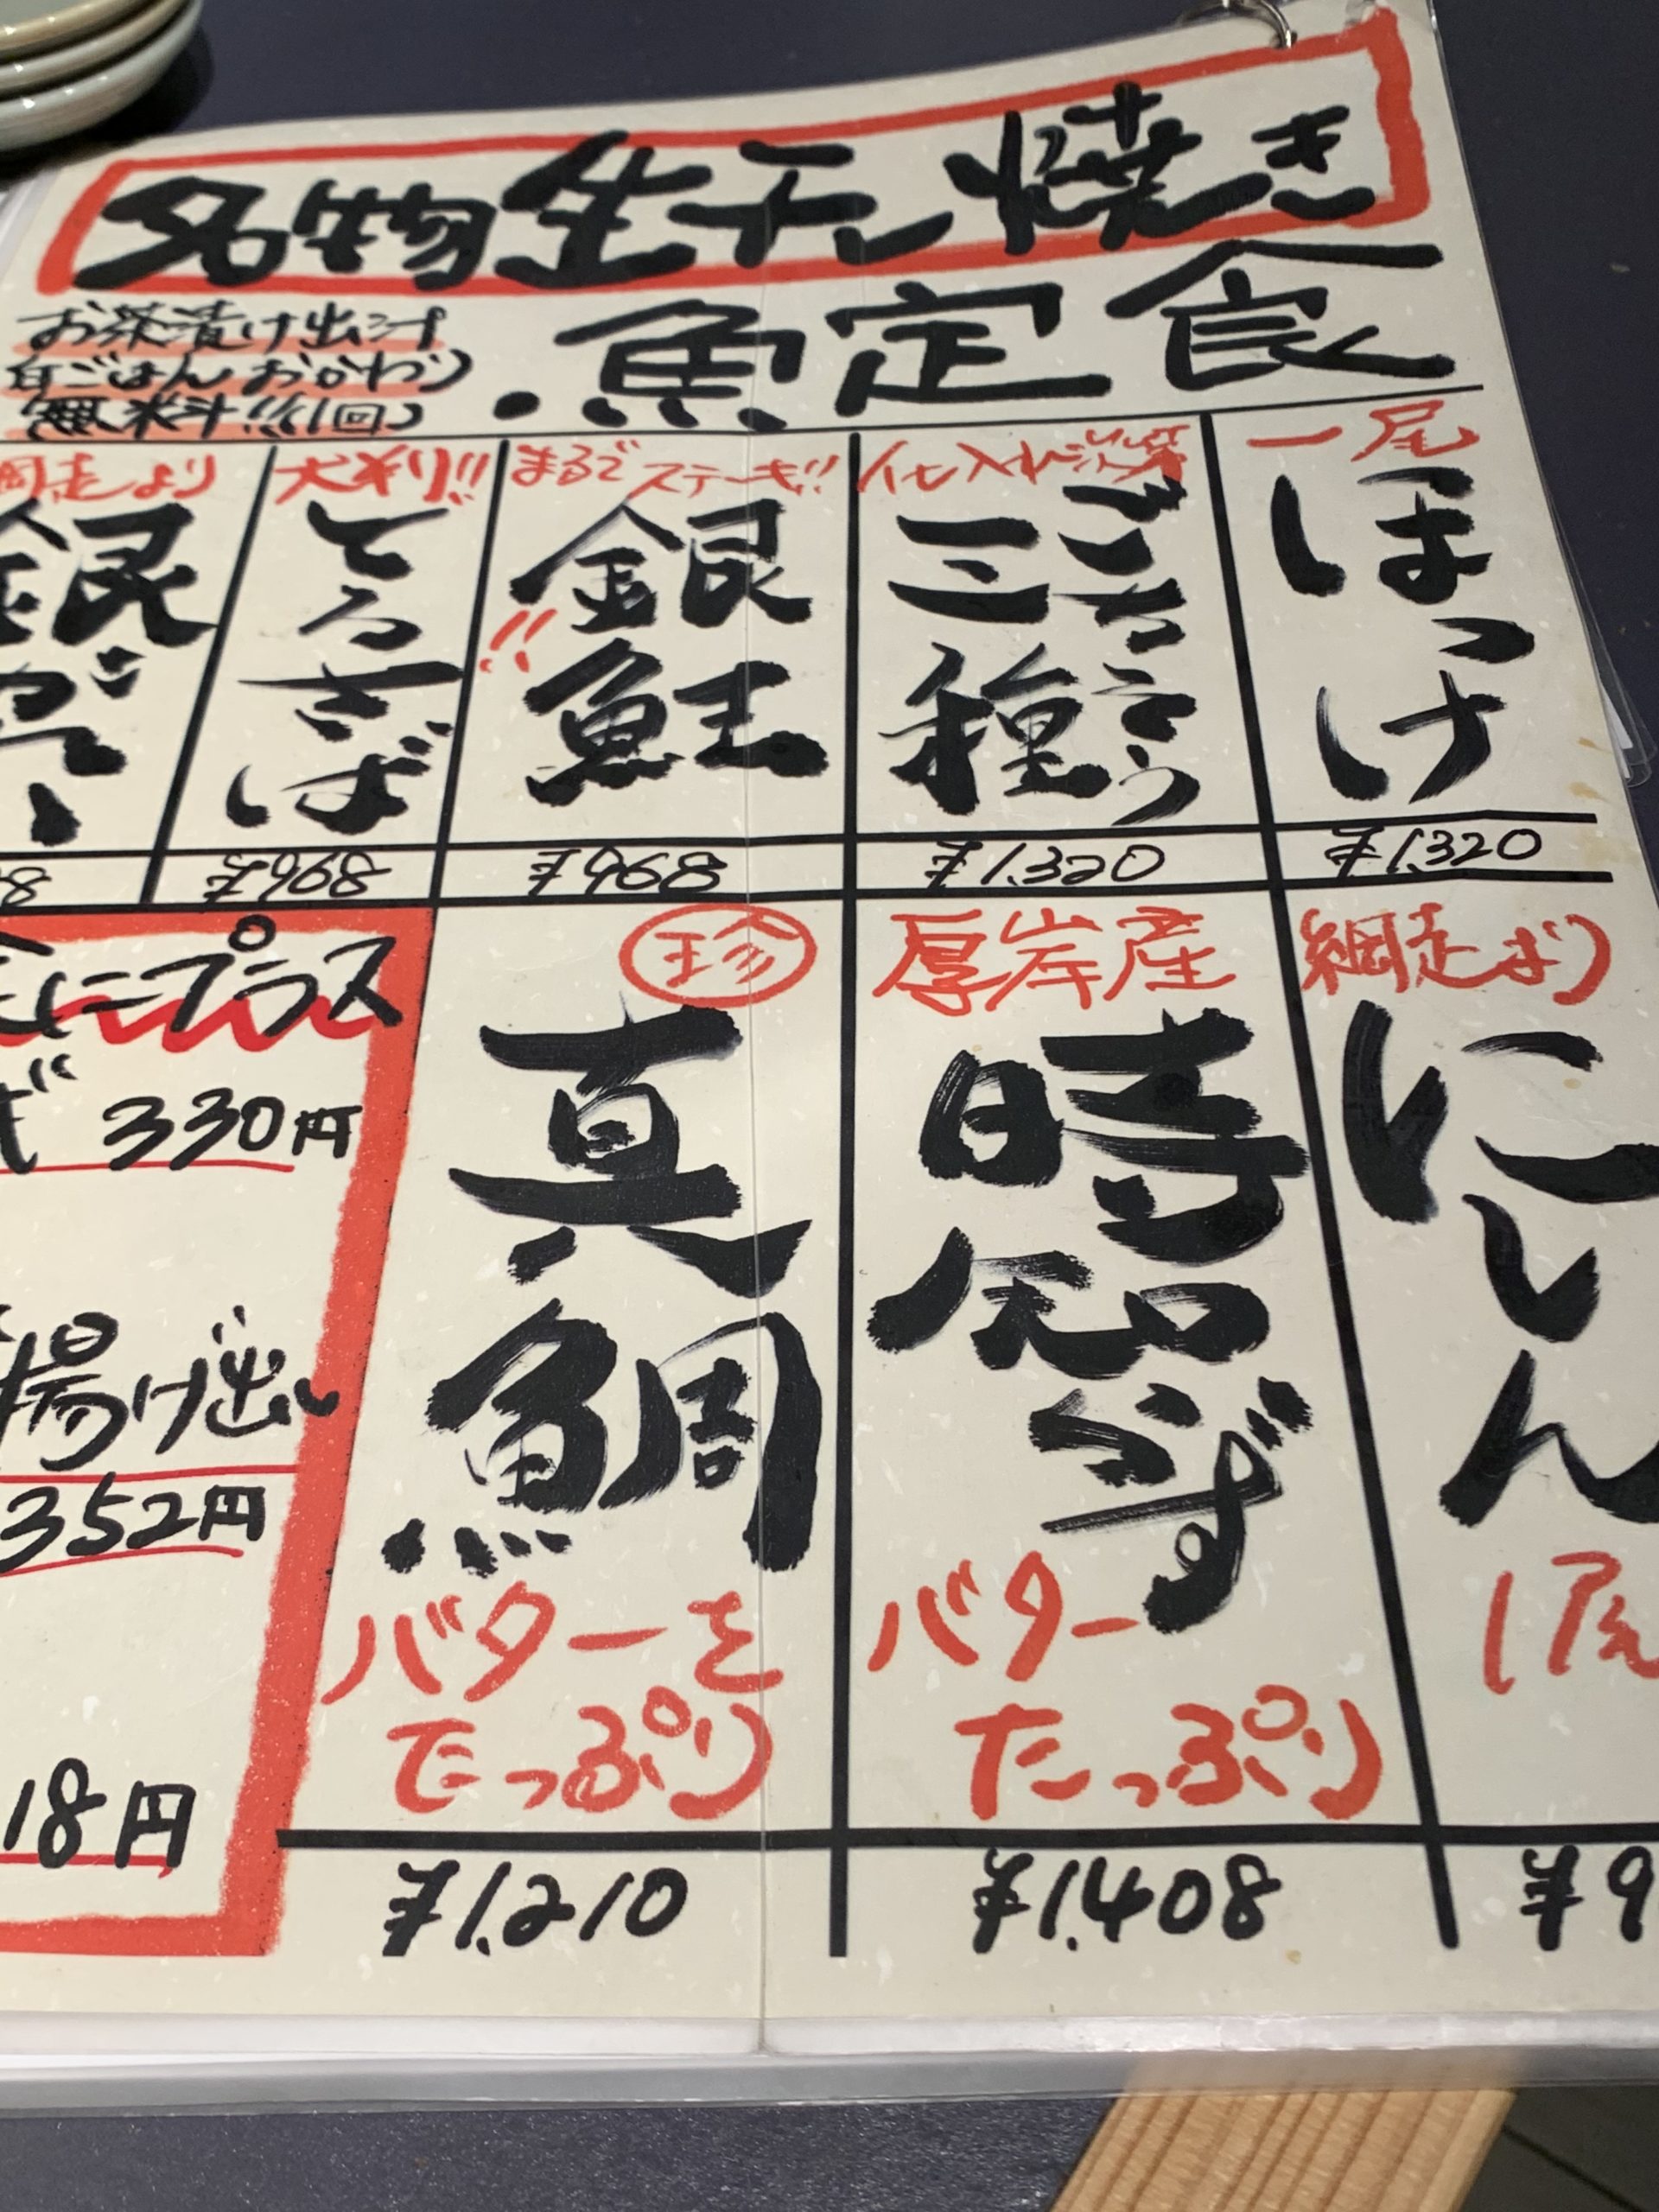 名物生干し焼き
魚定食
お茶漬け出汁
白ごはんおかわり
無料!!(1回)
一尾
ほっけ
¥1,320
仕入れ次第
ごちそう
三種
¥1,320
まるでステーキ!!
銀鮭
!!
¥968
大判り!!
とろさば
¥968
網走より
銀が
8
網走より
にしん
1尾
¥9
厚岸産
時知らず
バター
たっぷり
¥1,408
珍
真鯛
バターを
たっぷり
¥1,210
にプラス
330円
揚げ出し
352円
18円